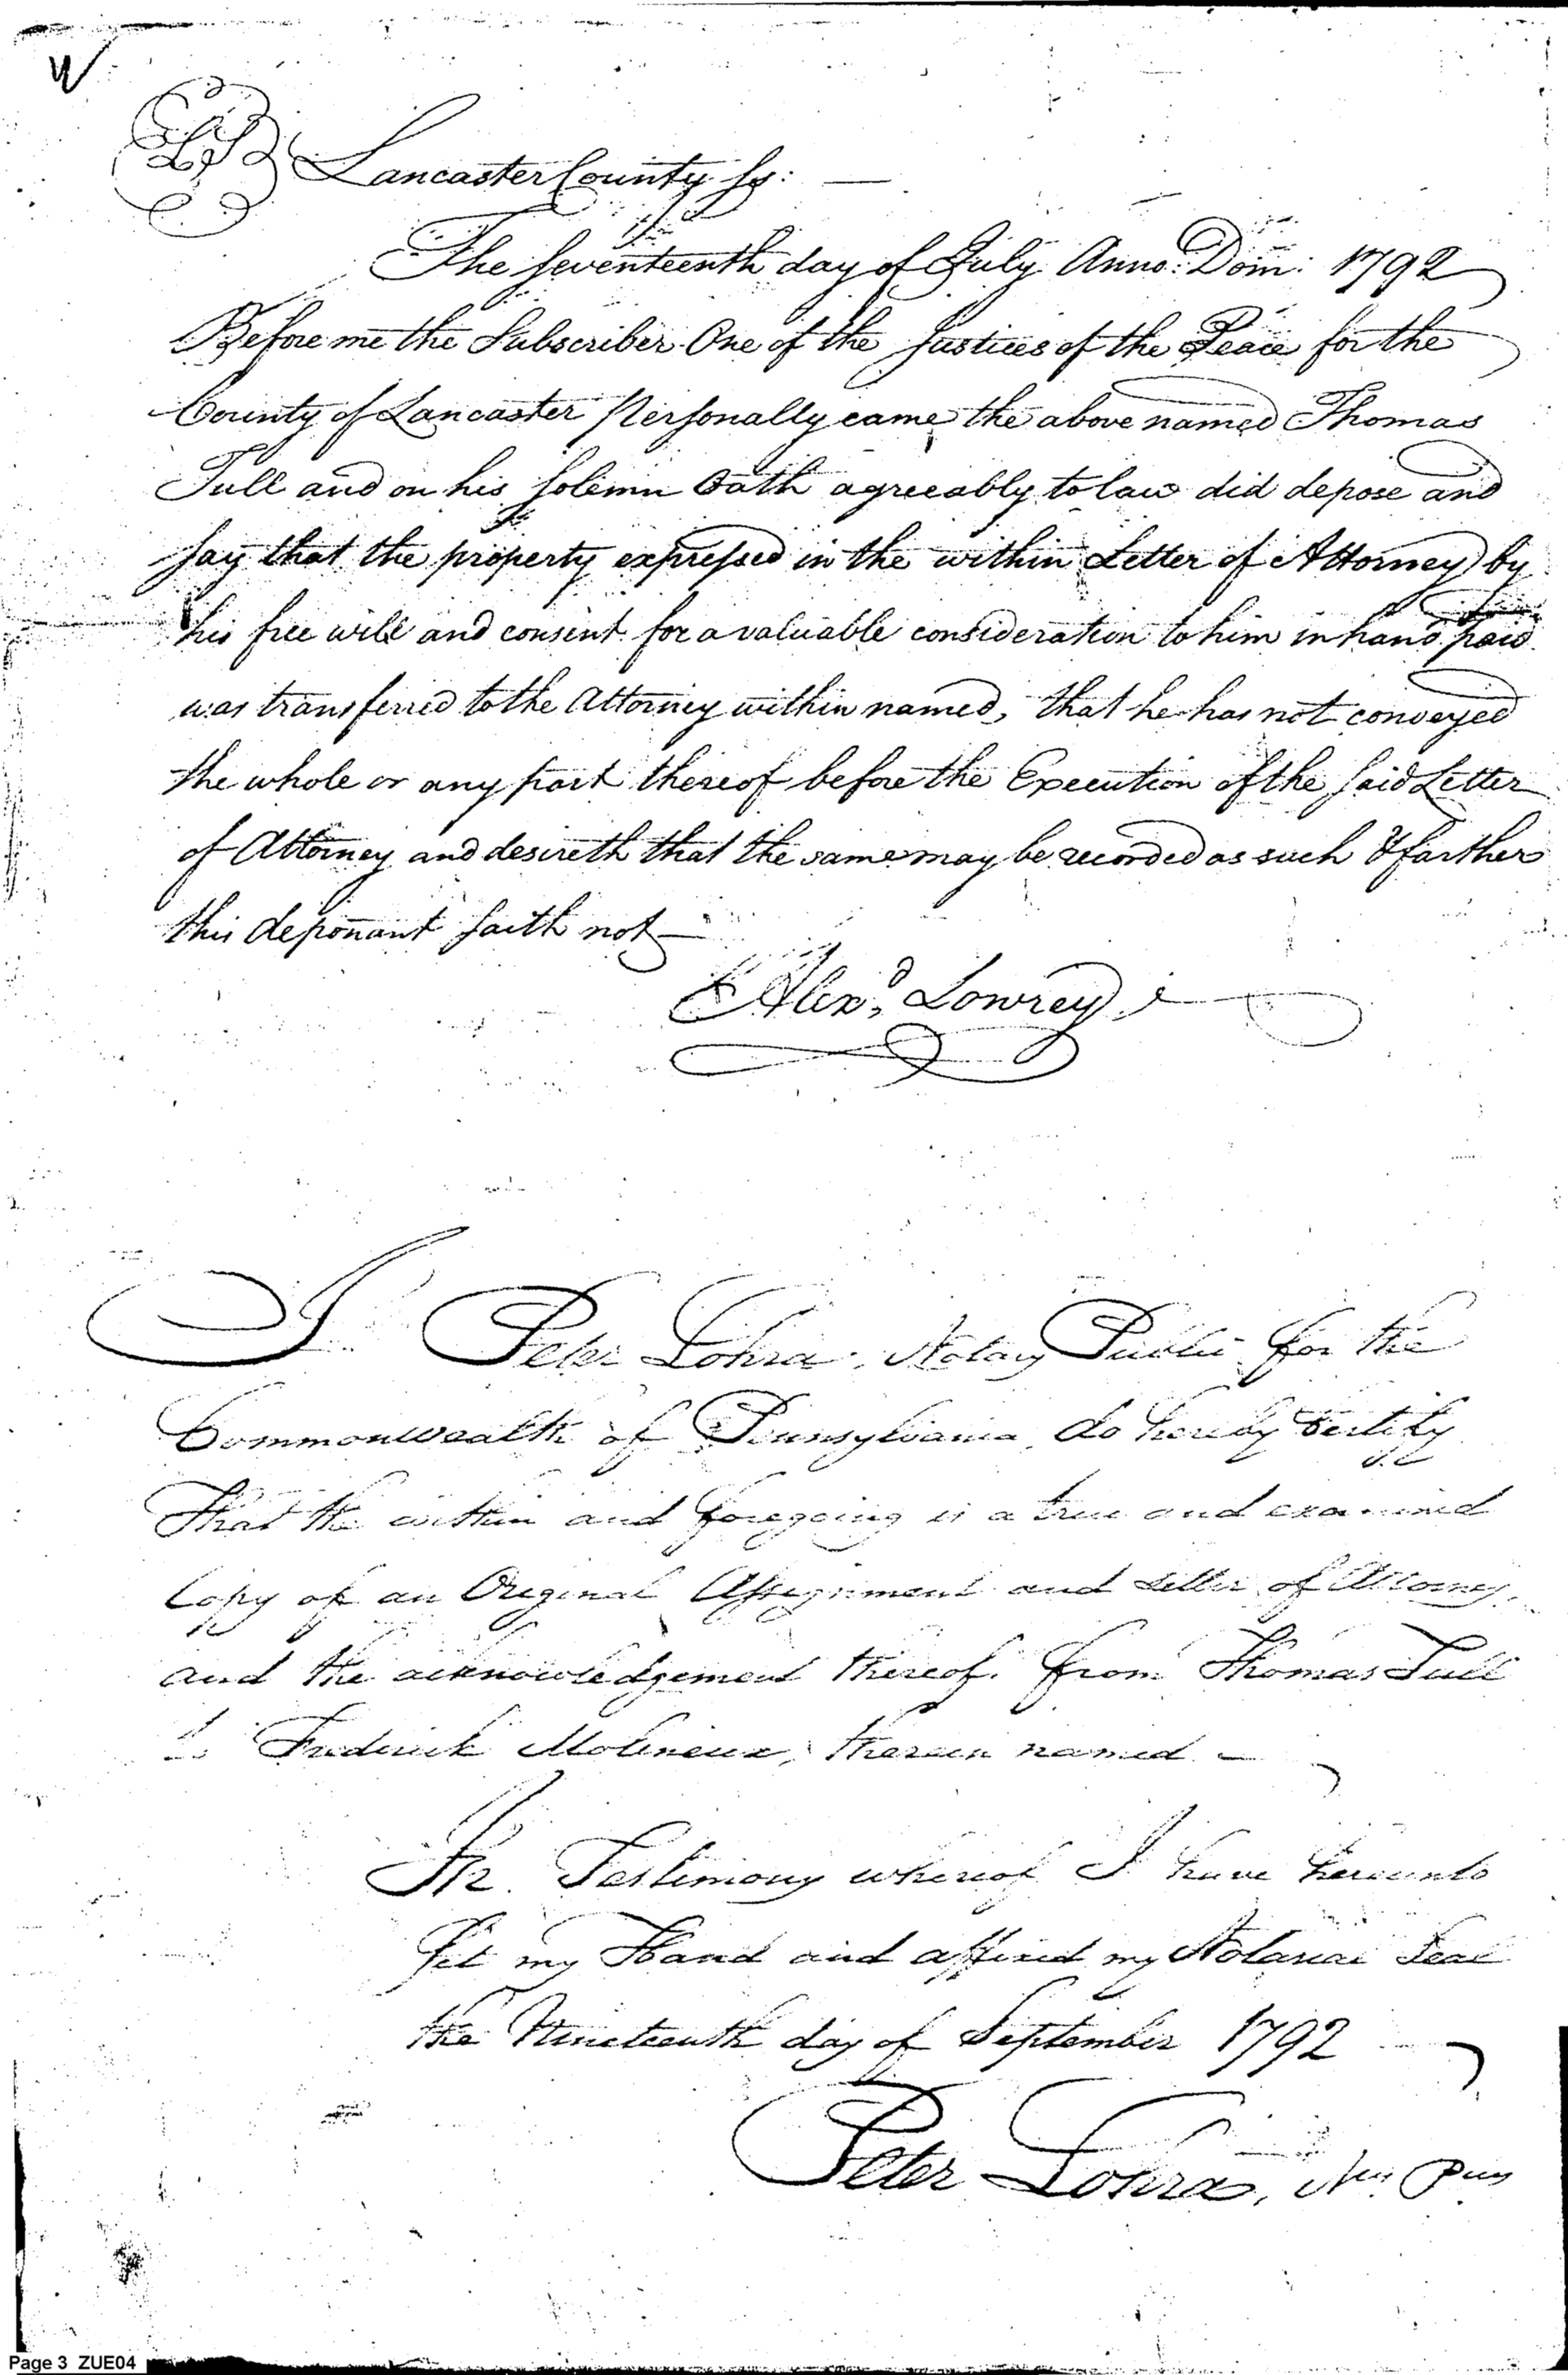 Lancaster County ss:
The seventeenth day of July Anno: Dom: 1792
Before me the Subscriber One of the Justices of the Peace for the
County of Lancaster Personally came the above named Thomas
Tull and on his solemn Oath agreeably to law did depose and
say that the property expressed in the within Letter of Attorney by
his free will and consent for a valuable consideration to him in hand paid
was transferred to the Attorney within named, that he has not conveyed
the whole or any part thereof before the Execution of the said Letter
of Attorney and desireth that the same may be recorded as such & farther
this deponant saith not
Alexr. Lowrey
I Peter Lohra, Notary Public for the
Commonwealth of Pennsylvania do hereby Certify
That the within and foregoing is a true and examined
Copy of an Original Assignment and Letter of Attorney,
and the acknowledgement thereof. from Thomas Tull
to Frederick Molineux, therein named
In Testimony whereof I have hereunto
set my Hand and affixed my Notarial Seal
the Nineteenth day of September 1792
Peter Lohra, Not. Pub
Page 3 ZUE04